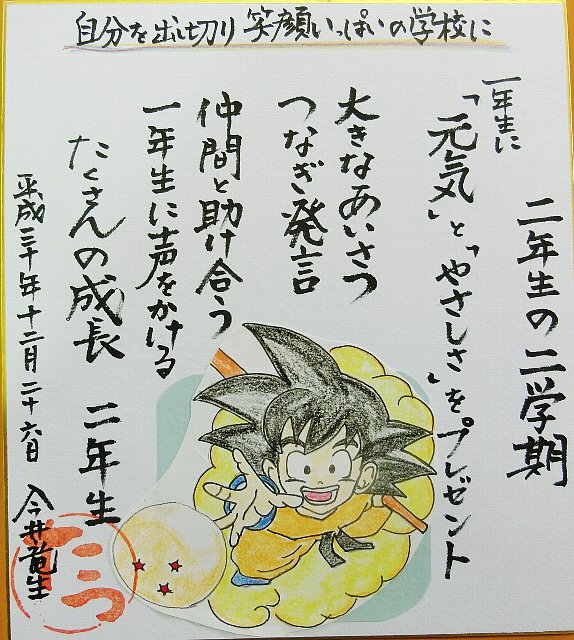 自分を出し切り 笑顔いっぱいの学校に
二年生の二学期
一年生に
「元気」と「やさしさ」をプレゼント
大きなあいさつ
つなぎ発言
仲間と助け合う
一年生に声をかける
たくさんの成長 二年生
平成三十年十二月二十六日 今井竜生